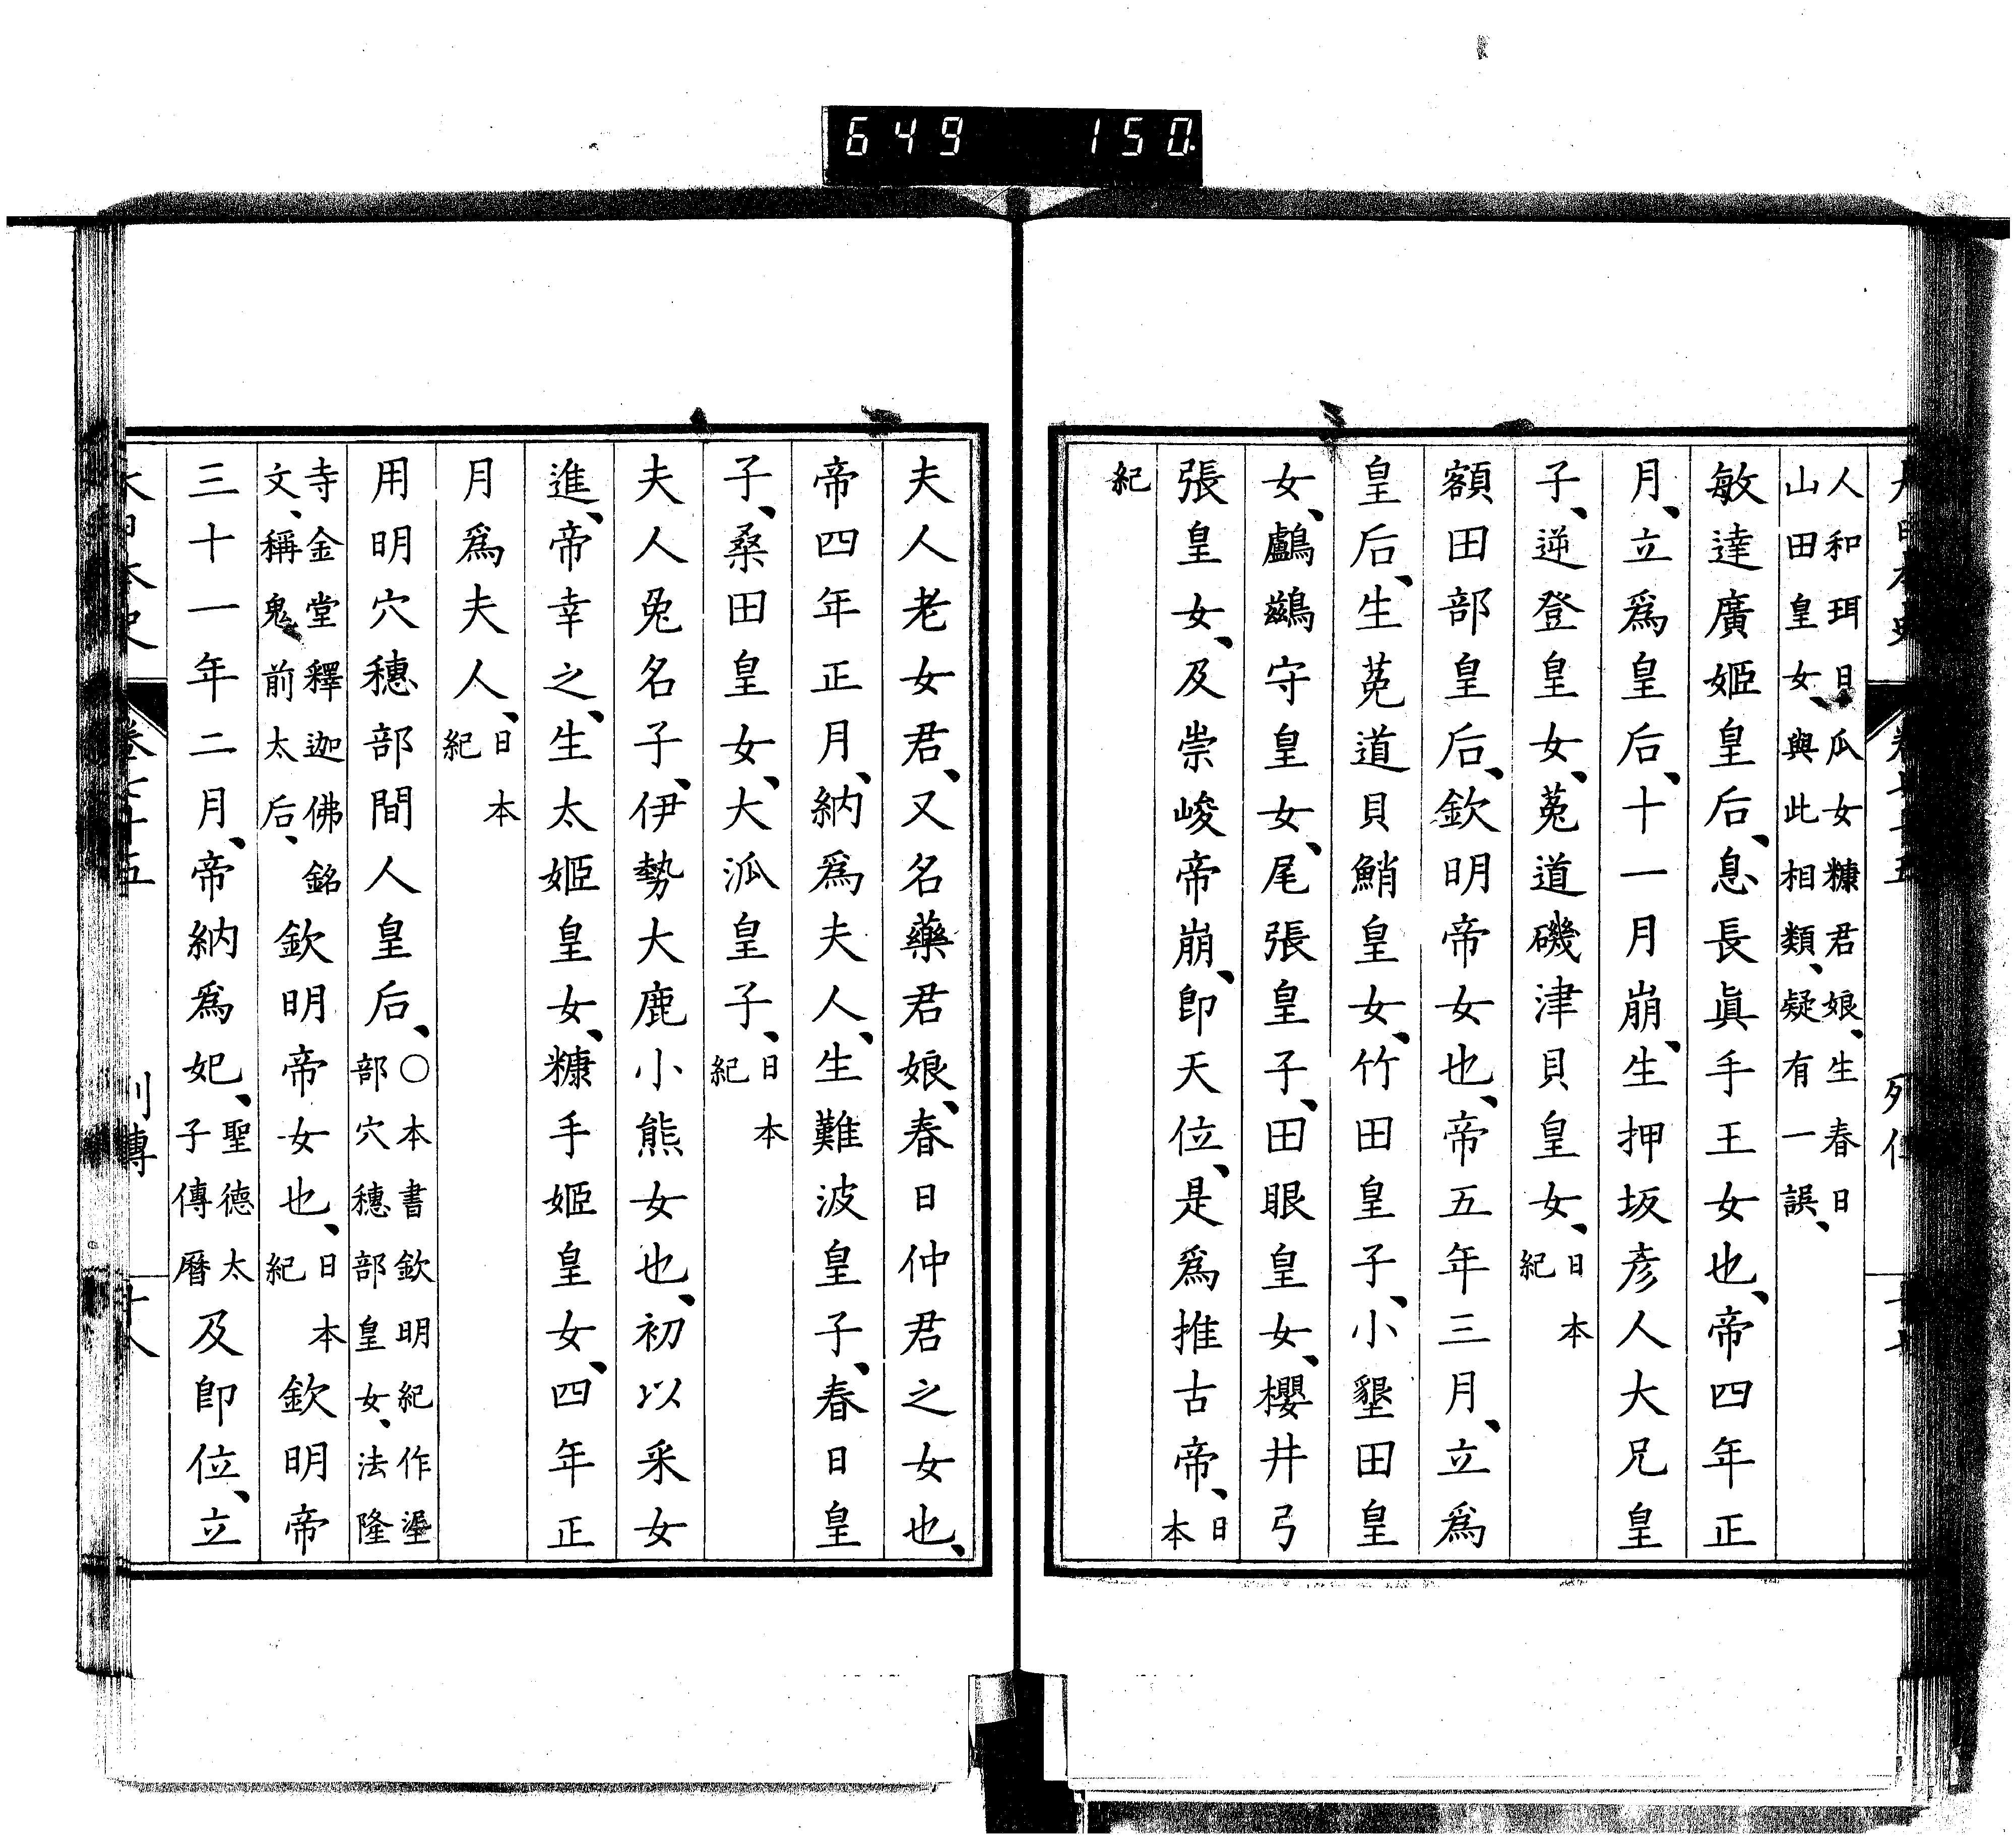 649 150
人和珥日瓜女糠君娘、生春日
山田皇女、與此相類、疑有一誤、
敏達廣姬皇后、息長眞手王女也、帝四年正
月、立爲皇后、十一月崩、生押坂彥人大兄皇
子、逆登皇女、菟道磯津貝皇女、日本紀
額田部皇后、欽明帝女也、帝五年三月、立爲
皇后、生菟道貝鮹皇女、竹田皇子、小墾田皇
女、鸕鷀守皇女、尾張皇子、田眼皇女、櫻井弓
張皇女、及崇峻帝崩、卽天位、是爲推古帝、日本
紀
夫人老女君、又名藥君娘、春日仲君之女也、
帝四年正月、納爲夫人、生難波皇子、春日皇
子、桑田皇女、大派皇子、日本紀
夫人兔名子、伊勢大鹿小熊女也、初以采女
進、帝幸之、生太姬皇女、糠手姬皇女、四年正
月爲夫人、日本紀
用明穴穗部間人皇后、○本書欽明紀作埿部穴穗部皇女、法隆
寺金堂釋迦佛銘文、稱鬼前太后、欽明帝女也、日本紀欽明帝
三十一年二月、帝納爲妃、聖德太子傳曆及卽位、立